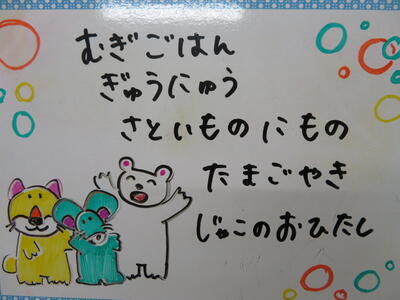 むぎごはん
ぎゅうにゅう
さといものにもの
たまごやき
じゃこのおひたし